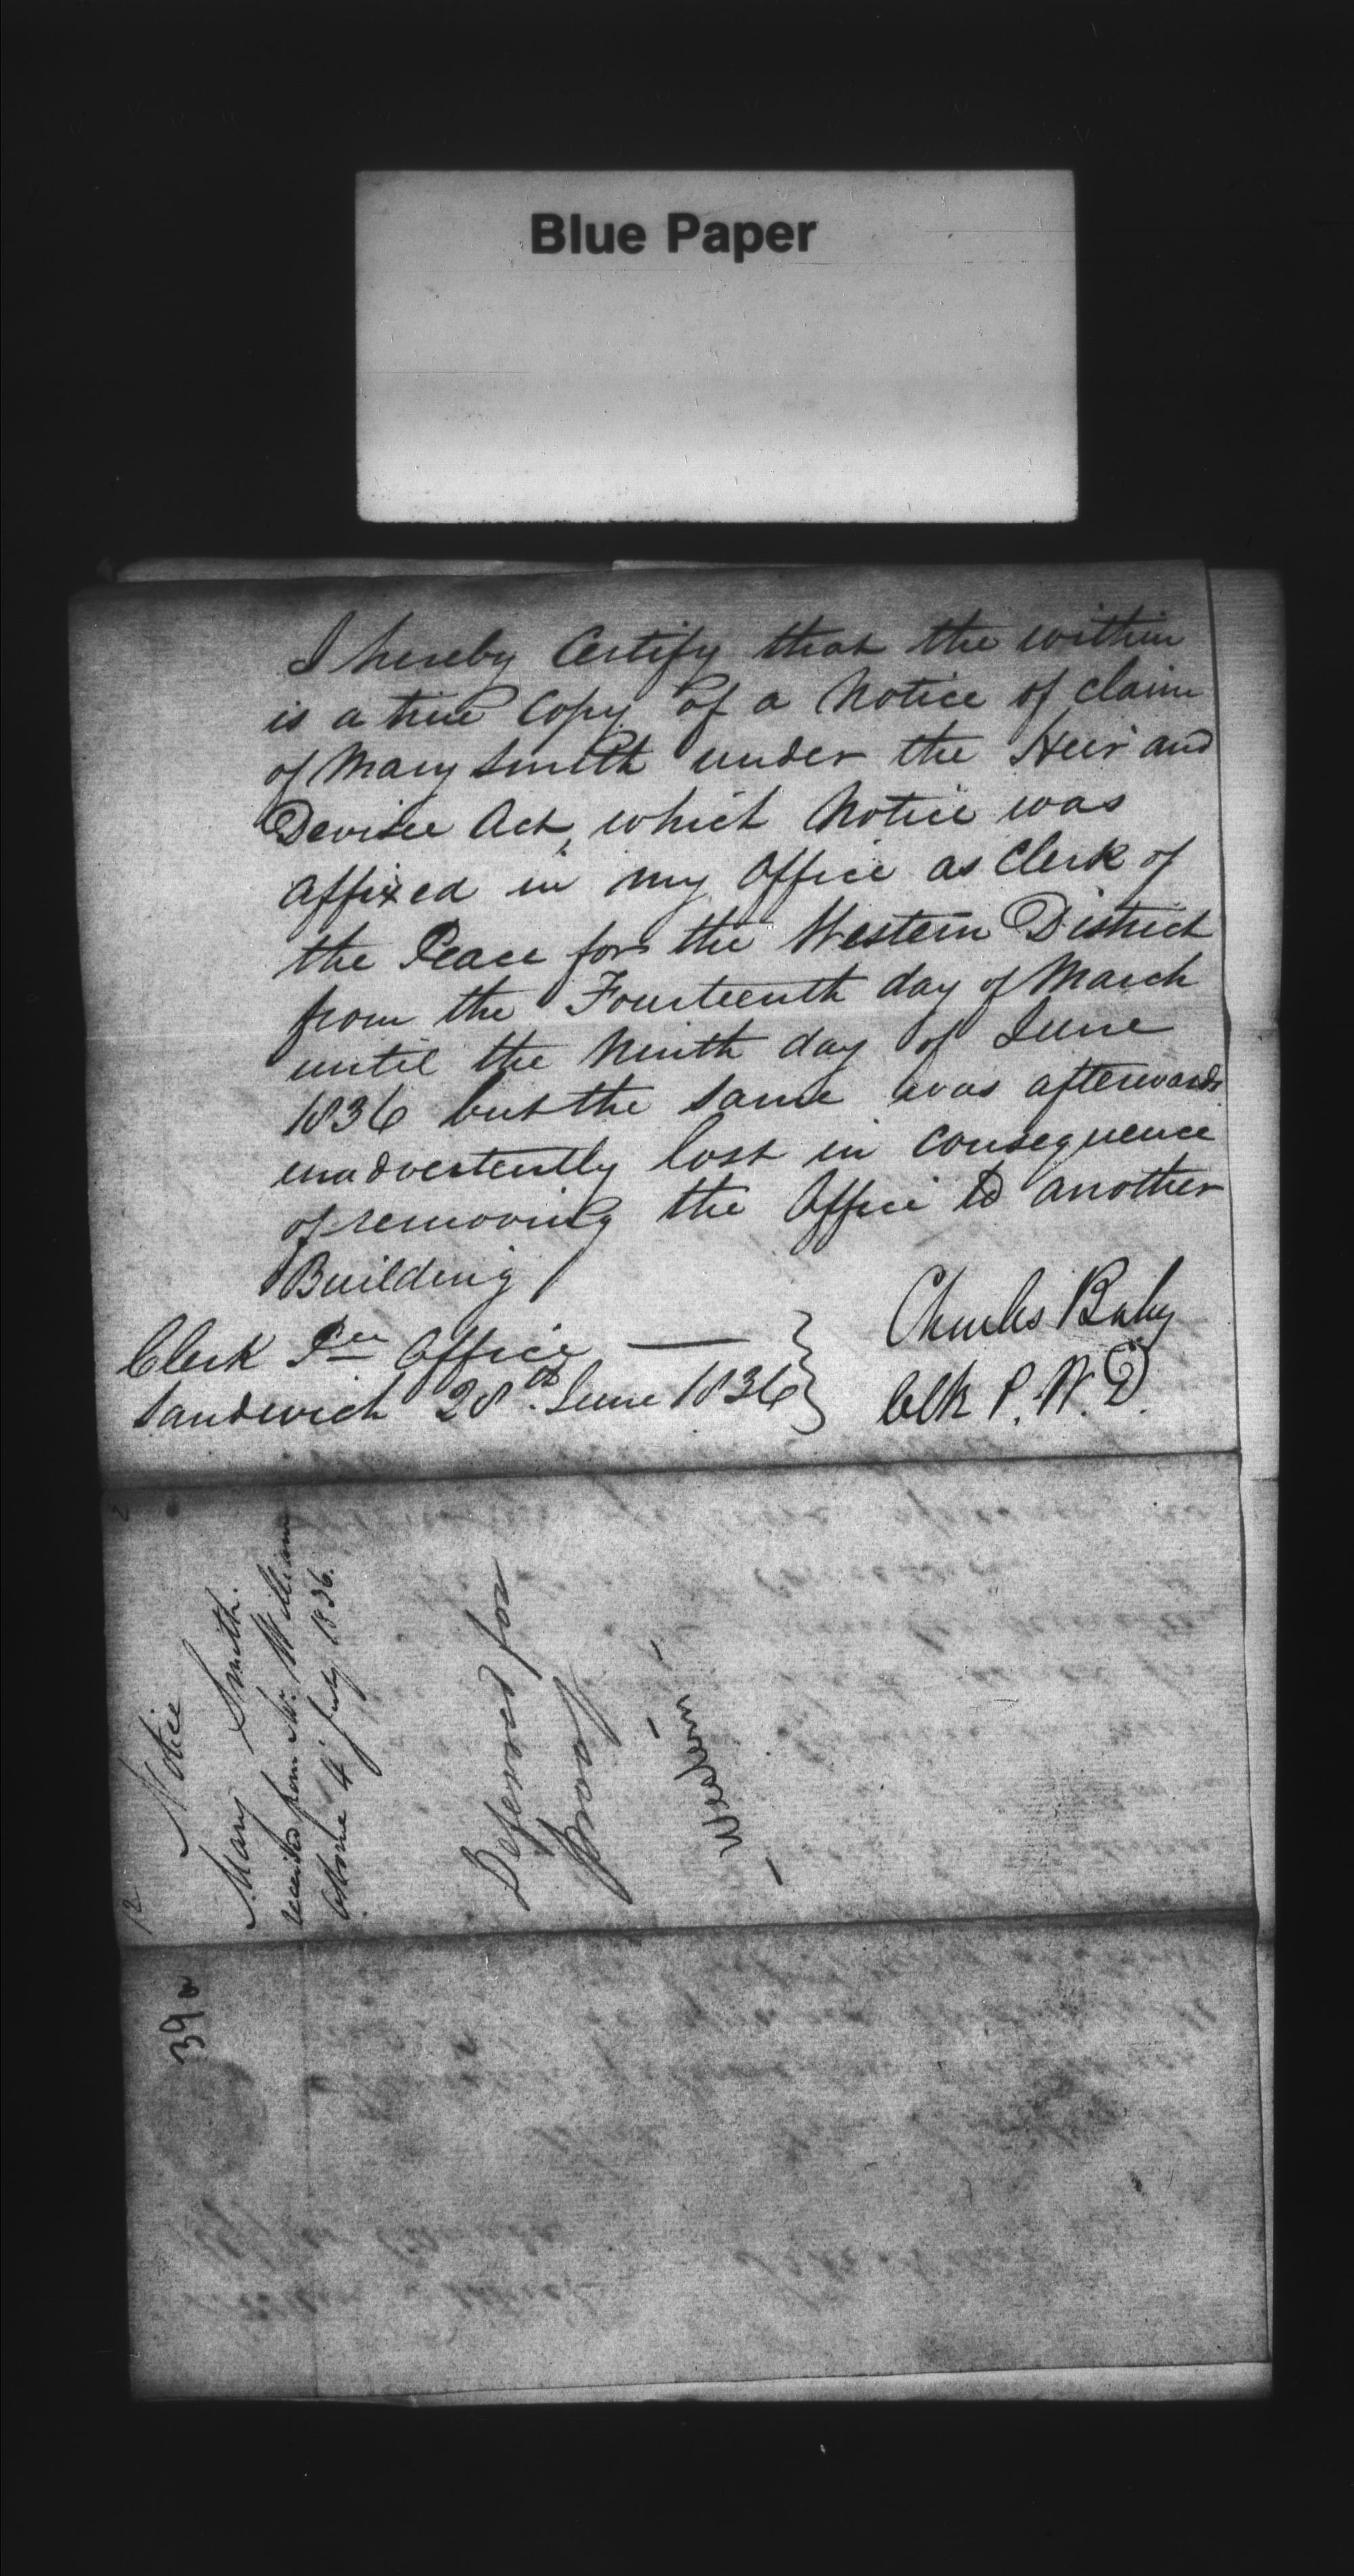 Blue Paper
I hereby Certify that the within
is a true Copy of a Notice of claim
of Mary Smith under the Heir and
Devisee Act, which Notice was
affixed in my Office as Clerk of
the Peace for the Western District
from the Fourteenth day of March
until the Ninth day of June
1836 but the same was afterwards
inadvertently lost in consequence
of removing the Office to another
Building
Clerk Pce Office
Sandwich 28th June 1836
Charles Baby
Clk P. W. D.
Notice
Mary Smith.
received from Mr. William
4 July 1836.
Deferred for
proof
Western
12
39